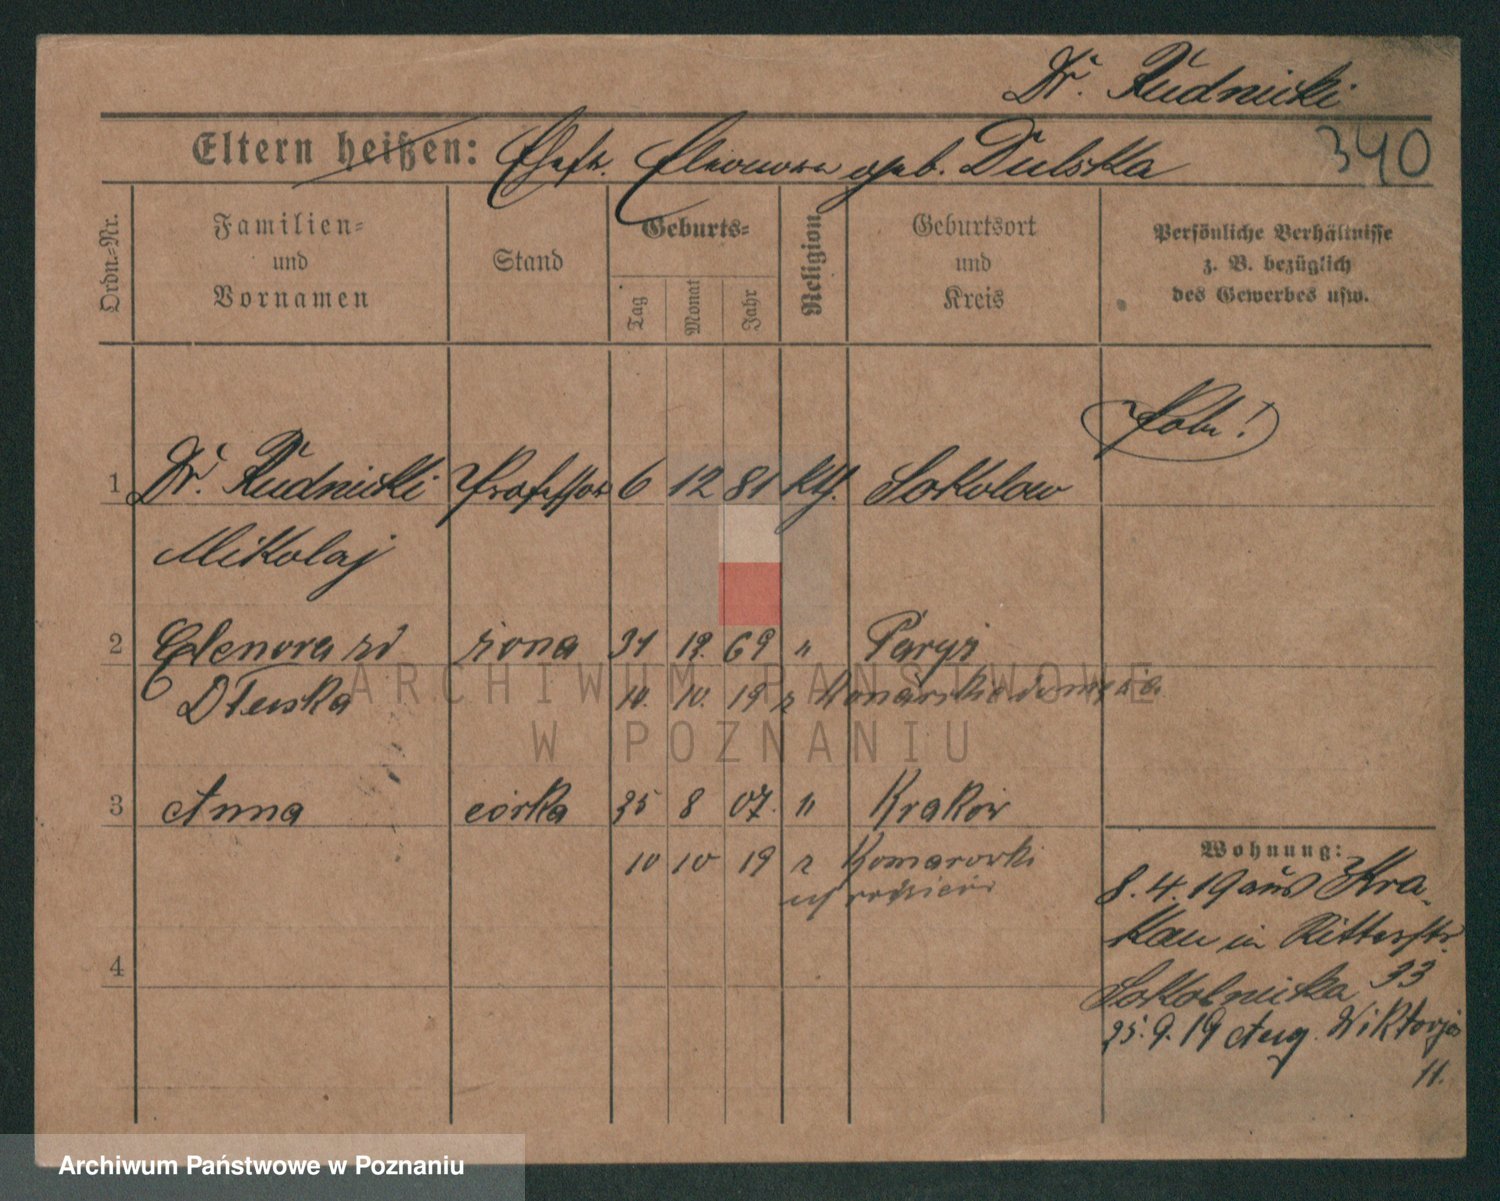 Dr. Rudnicki
340
Eltern heißen: Ehefr. Eleonora geb. Dulska
Ordn.-Nr.
Familien-
und
Vornamen
Stand
Geburts-
Tag
Monat
Jahr
Religion
Geburtsort
und
Kreis
Persönliche Verhältnisse
z. B. bezüglich
des Gewerbes usw.
Pole!
1 Dr. Rudnicki Professor 6 12 81 kth. Sokolow
Mikolaj
2 Elenora zd żona 31 12. 69 " Paryż
Dłuska 10. 10. 19 z
3 Anna córka 25 8 07. " Kraków
10 10 19 z Komarowki
Wohnung:
8.4.19 aus Kra-
kau in Ritterstr.
33
Sokolnicka
25.9.19 Aug. Wiktorja
11.
4
ARCHIWUM PAŃSTWOWE
W POZNANIU
Archiwum Państwowe w Poznaniu